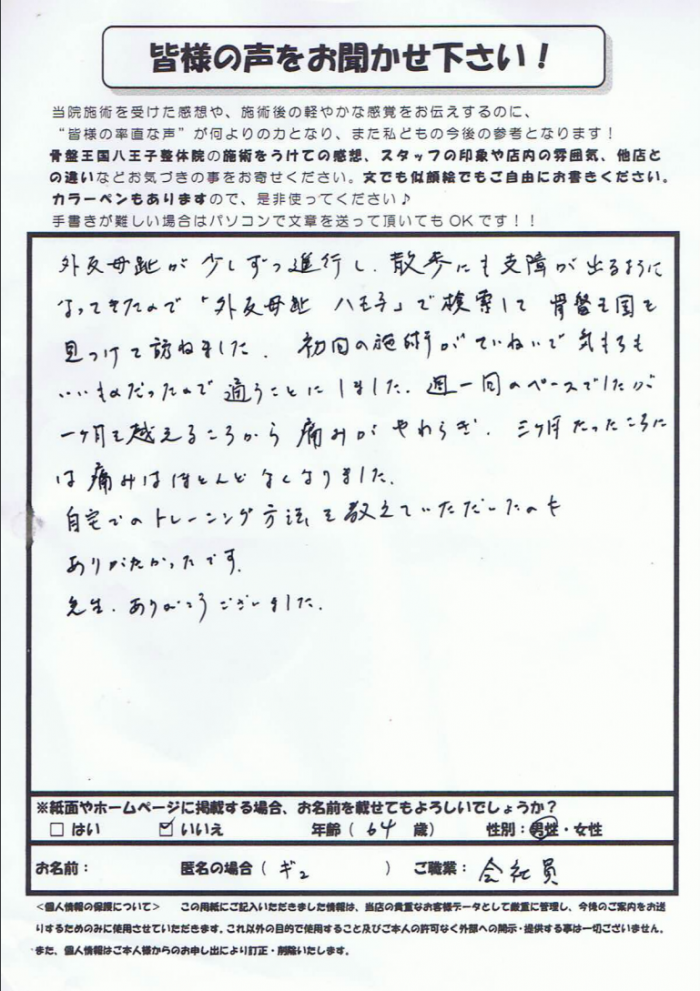 皆様の声をお聞かせ下さい！
当院施術を受けた感想や、施術後の軽やかな感覚をお伝えするのに、
“皆様の率直な声”が何よりの力となり、また私どもの今後の参考となります！
骨盤王国八王子整体院の施術をうけての感想、スタッフの印象や店内の雰囲気、他店と
の違いなどお気づきの事をお寄せください。文でも似顔絵でもご自由にお書きください。
カラーペンもありますので、是非使ってください♪
手書きが難しい場合はパソコンで文章を送って頂いてもOKです！！
外反母趾が少しずつ進行し、散歩にも支障が出るように
なってきたので「外反母趾 八王子」で検索して 骨盤王国を
見つけて訪ねました。 初回の施術がていねいで気もちも
いいものだったので通うことにしました。週一回のペースでしたが
一ヶ月を越えるころから痛みがやわらぎ、三ヶ月たったころに
は痛みはほとんどなくなりました。
自宅でのトレーニング方法を教えていただいたのも
ありがたかったです。
先生、ありがとうございました。
※紙面やホームページに掲載する場合、お名前を載せてもよろしいでしょうか？
□ はい ☑ いいえ 年齢（ 64 歳） 性別：男性・女性
お名前： 匿名の場合（ ギュ ） ご職業： 会社員
＜個人情報の保護について＞ この用紙にご記入いただきました情報は、当店の貴重なお客様データとして厳重に管理し、今後のご案内をお送
りするためのみに使用させていただきます。これ以外の目的で使用すること及びご本人の許可なく外部への開示・提供する事は一切ございません。
また、個人情報はご本人様からのお申し出により訂正・削除いたします。